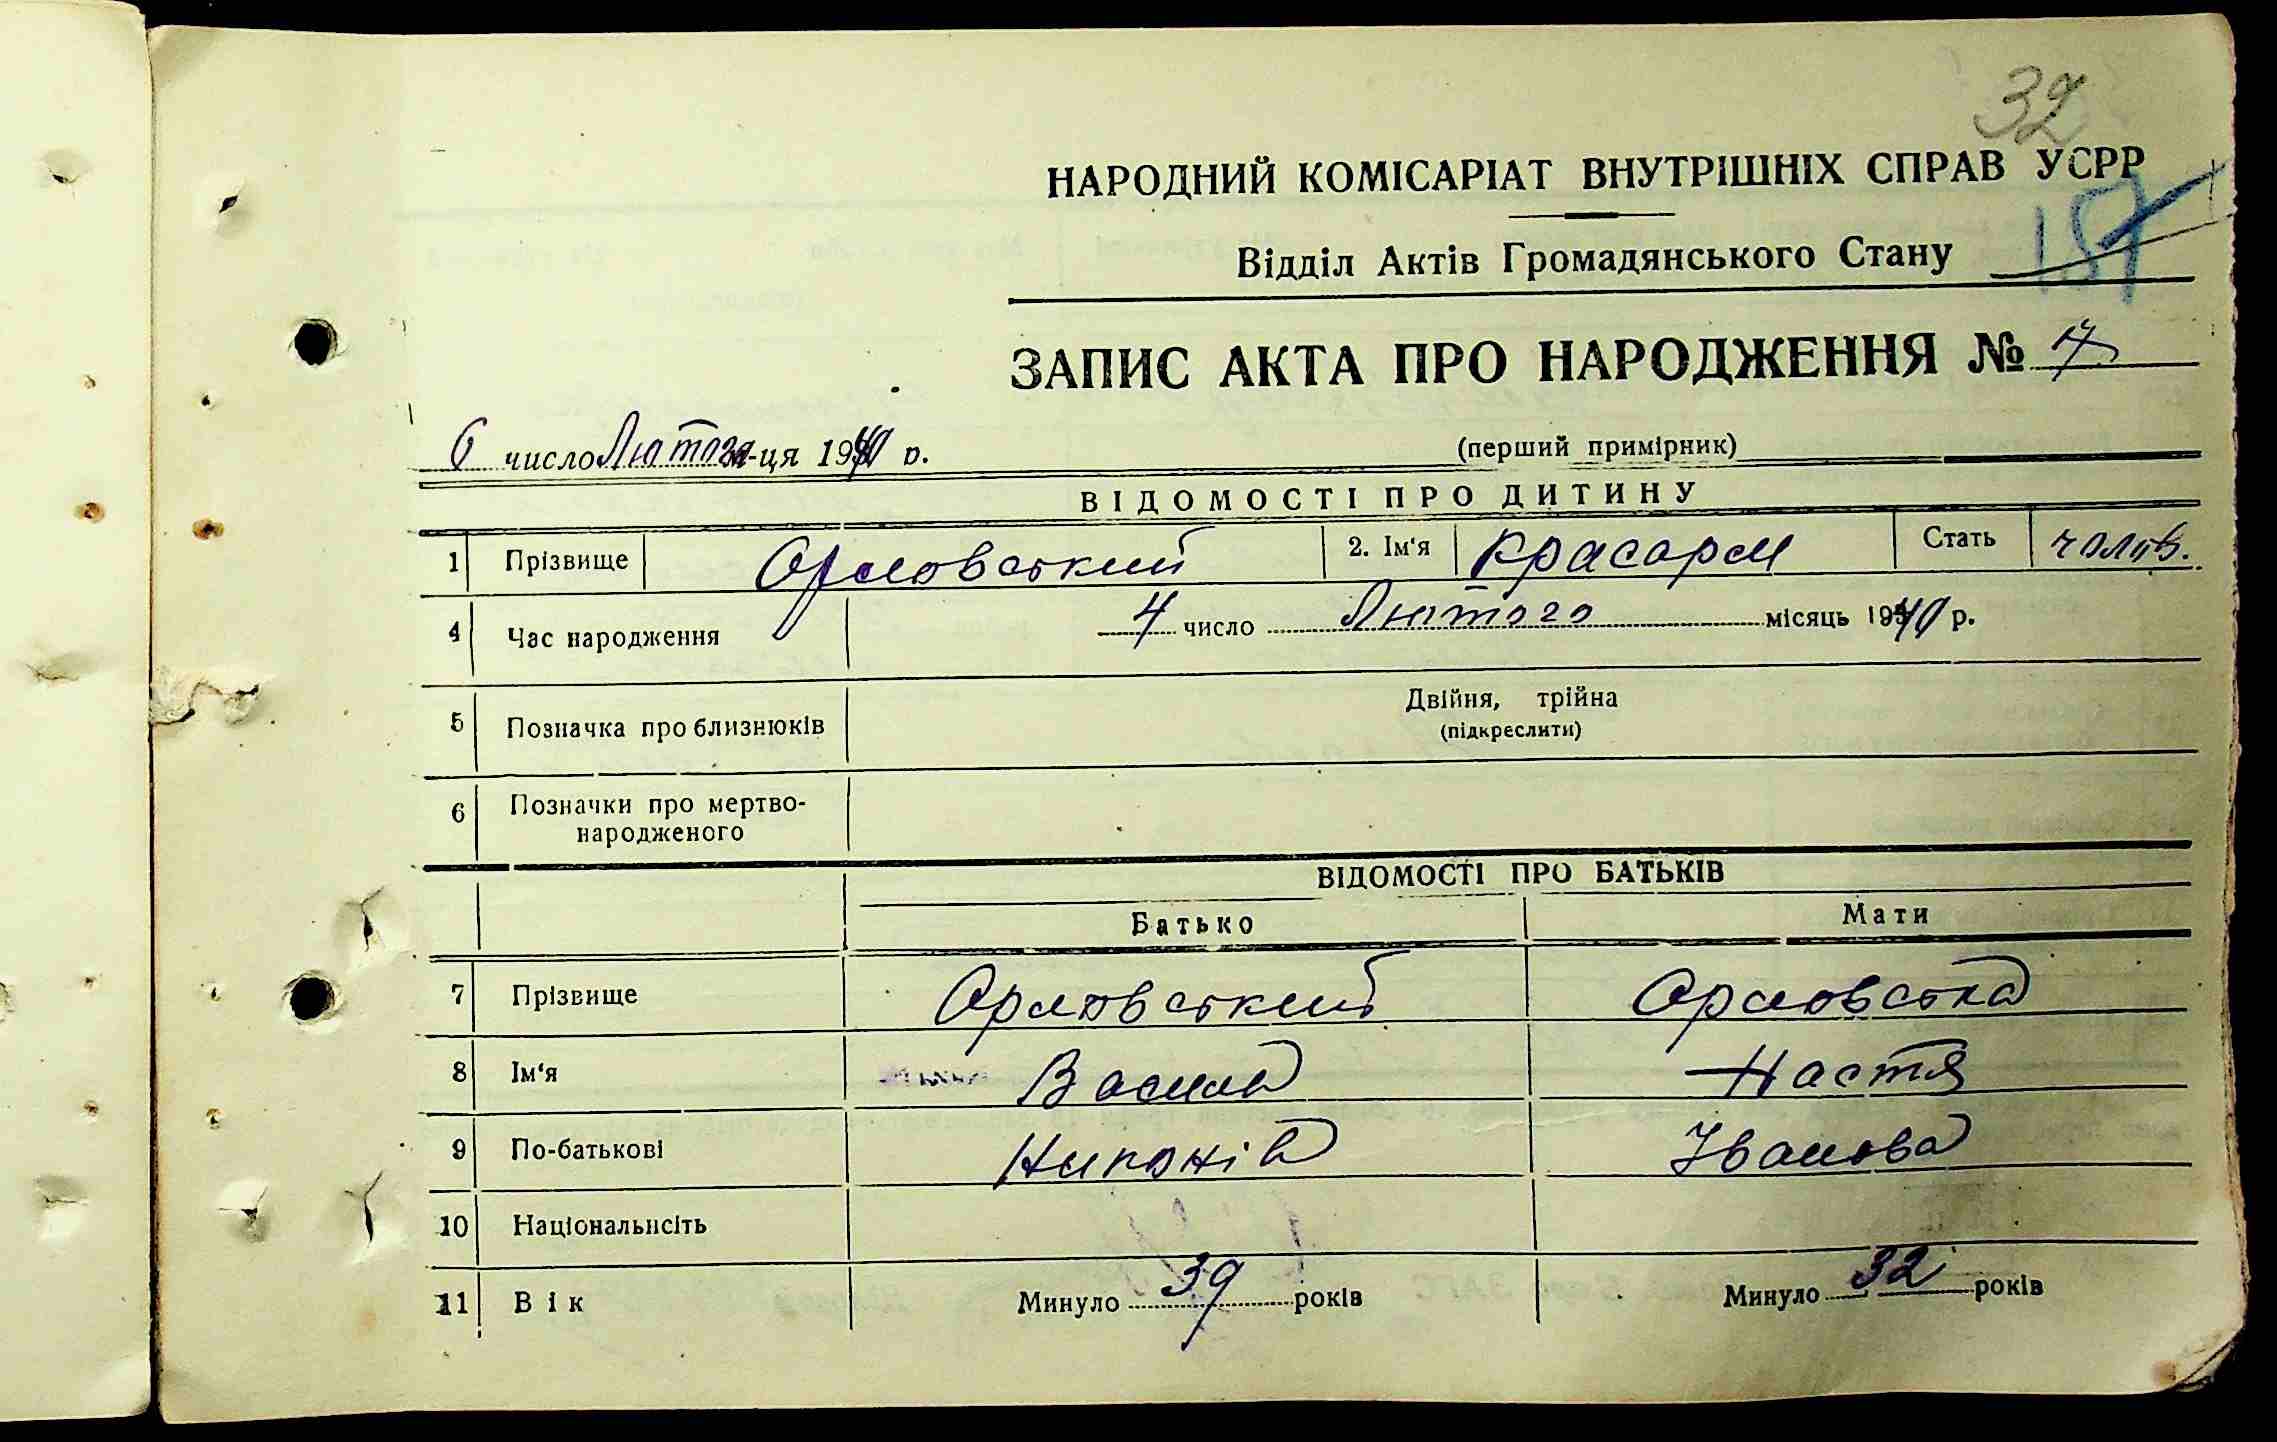 32
НАРОДНИЙ КОМІСАРІАТ ВНУТРІШНІХ СПРАВ УСРР
Відділ Актів Громадянського Стану
157
ЗАПИС АКТА ПРО НАРОДЖЕННЯ № 7
6 число Лютого м-ця 1940 р.
(перший примірник)
ВІДОМОСТІ ПРО ДИТИНУ
1 Прізвище Орловський 2. Ім‘я Красарм Стать чолов.
4 Час народження 4 число Лютого місяць 1940 р.
5 Позначка про близнюків Двійня, трійна
(підкреслити)
6 Позначки про мертво-
народженого
ВІДОМОСТІ ПРО БАТЬКІВ
Батько Мати
7 Прізвище Орловський Орловська
8 Ім‘я Василь Настя
9 По-батькові Нипонів Іванова
10 Національність
11 Вік Минуло 39 років Минуло 32 років